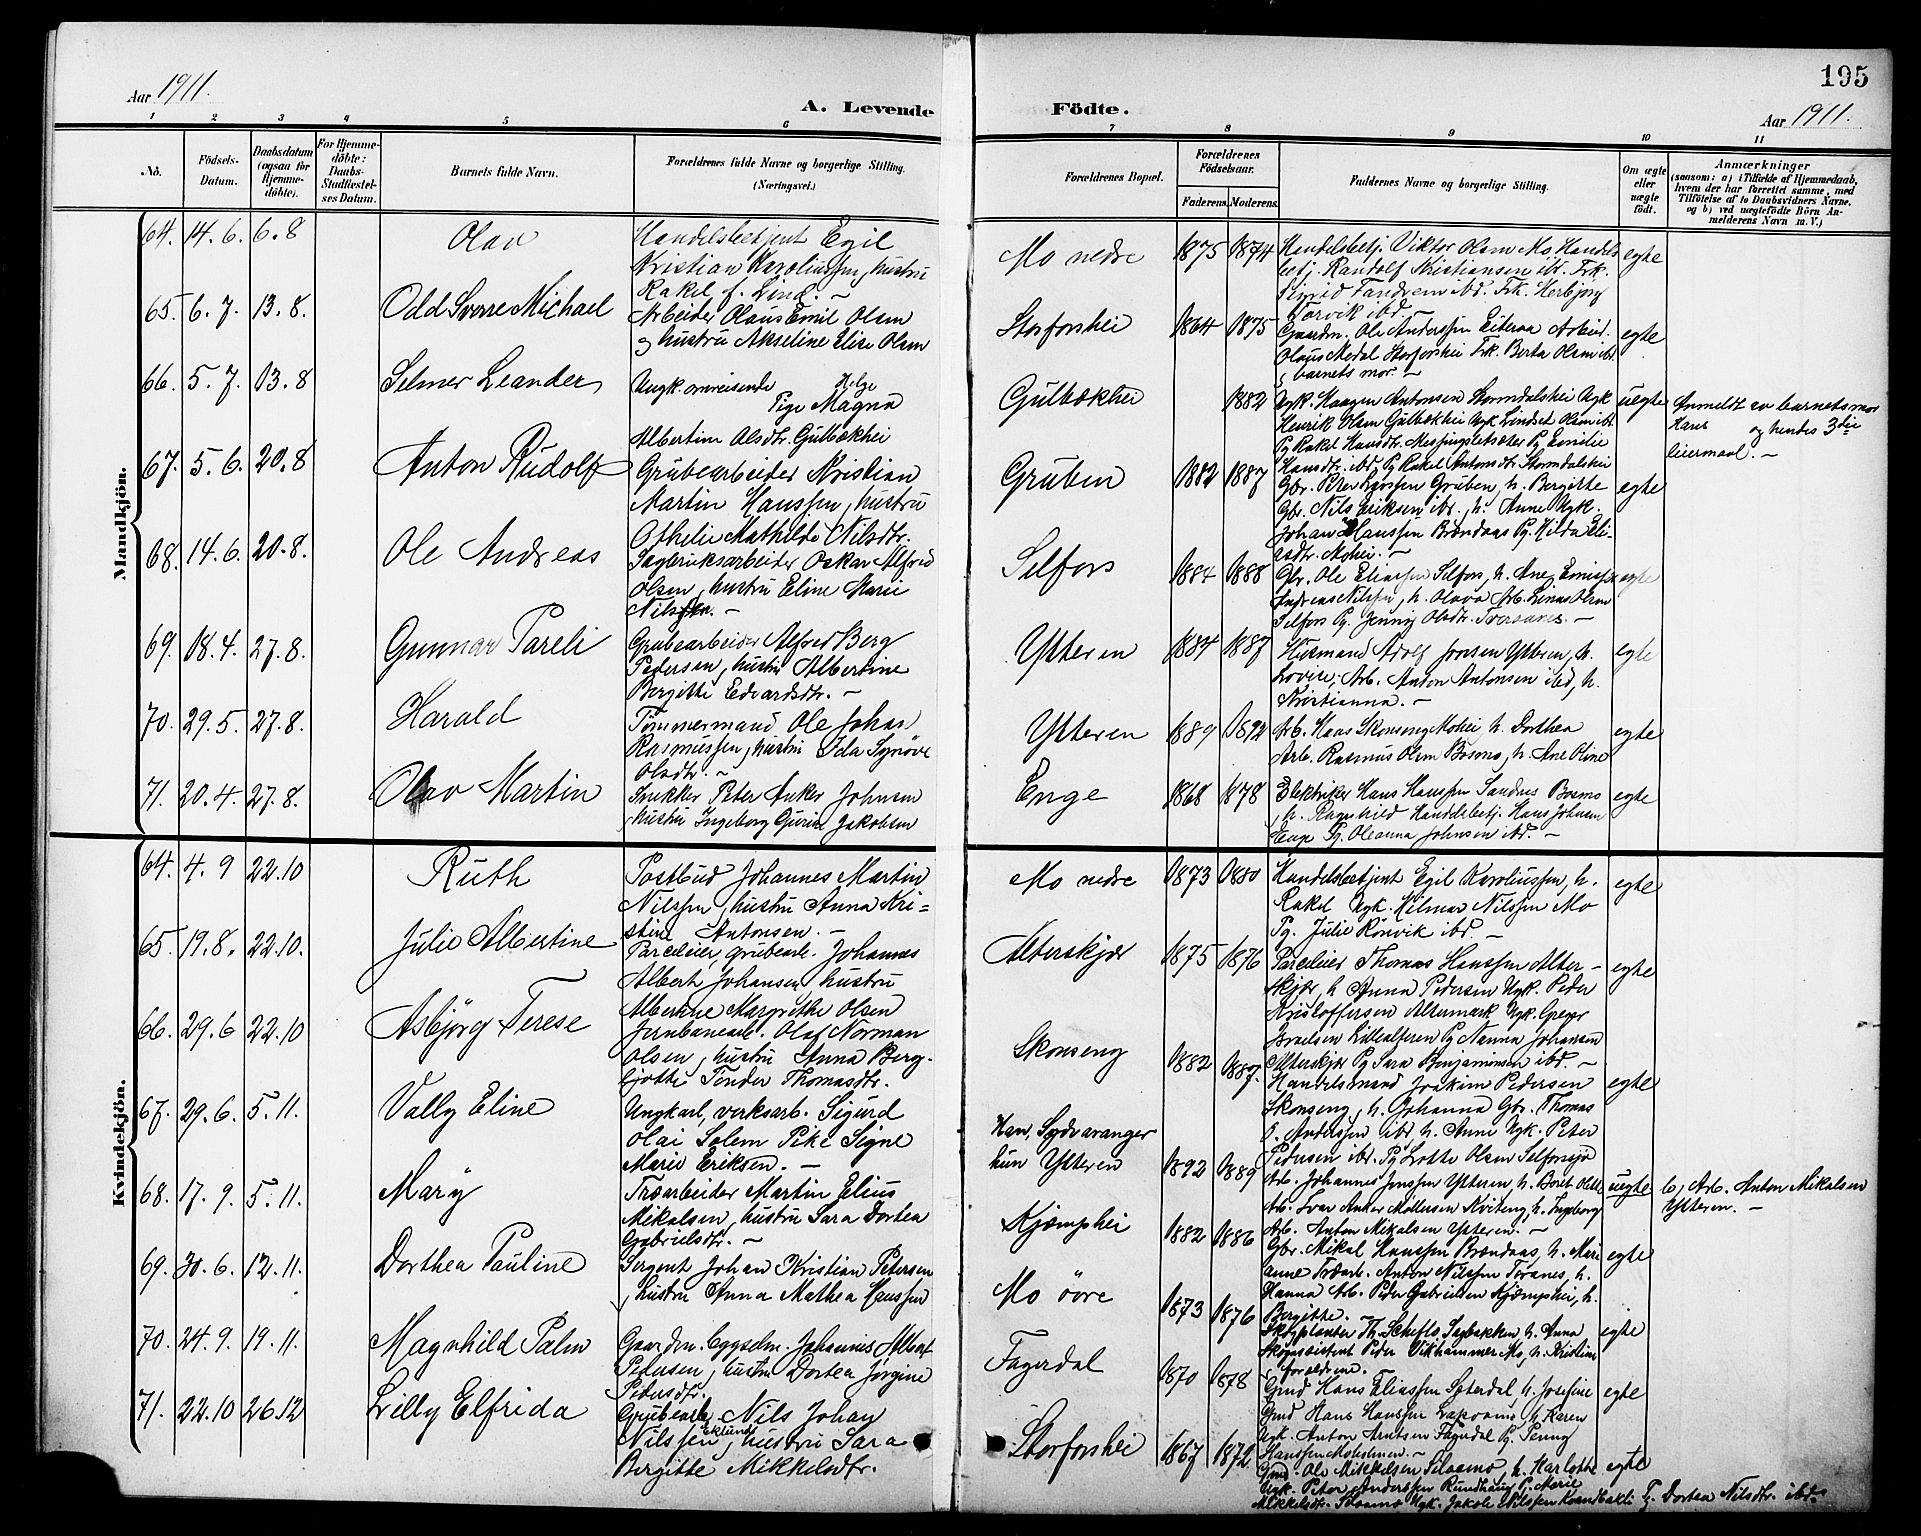 195
Aar 1911.
A. Levende Födte.
Aar 1911.
1 2 3 4 5 6 7 8 9 10 11
No.
Födsels-Datum.
Daabsdatum (ogsaa for Hjemmedöbte).
For Hjemmedöbte: Daabs-Stadfæstelses Datum.
Barnets fulde Navn.
Forældrenes fulde Navne og borgerlige Stilling. (Næringsvei.)
Forældrenes Bopæl.
Forældrenes Födselsaar.
Faderens. Moderens.
Faddernes Navne og borgerlige Stilling.
Om ægte eller uægte födt.
Anmærkninger
(saasom: a) i Tilfælde af Hjemmedaab, hvem der har forrettet samme, med Tilföielse af to Daabsvidners Navne, og b) ved uægtefödte Börn Anmelderens Navn m. V.)
Mandkjön.
64. 14.6. 6.8 Olav
Handelsbetjent Egil
Kristian Karoliussen, hustru
Rakel f. Lind. —
Mo nedre 1875 1874
Handelsbetj. Viktor Olsen Mo, Handels
betj. Randolf Kristiansen ibr. Frk.
Sigrid Tandrem ibd. Frk. Herbjørg
Torvik ibd. —
egte
65. 6.7. 13.8. Odd Sverre Michael
Arbeider Olaus Emil Olsen
og hustru Akseline Elise Olsen
Storforshei 1864 1875
Gaardm. Ole Anderssen Eiteraa Arbeid.
Olaus Medal Storforshei Frk. Berta Olsen ibr.
barnets mor. —
egte
66. 5.7. 13.8 Selmer Leander
Ungk. omreisende Helge
Pige Magna
Albertine Olsdtr. Gulbækhei
Gulbækhei 1882
Ugk. Haagen Antonsen Stormdalshei Ugk
Henrik Olsen Gulbækhei Ugk Lindset Olsen ibr.
Pg Rakel Hansdtr. Messingsletsæter Pg Emilie
Hansdtr. ibd. Pg Rakel Antonsdtr Stormdalshei
uegte
Anmeldt av barnets mor
Hans og hendes 3die
leiermaal. —
67. 5.6. 20.8 Anton Rudolf
Grubearbeider Kristian
Martin Hanssen, hustru
Othelie Mathilde Nilsdtr.
Gruben 1882 1887
Gbr. Peter Larssen Gruben, h. Bergitte
Gbr. Nils Eriksen ibr., h. Anne Ugk.
Johan Hanssen Brændaas Pg. Hilda Eli-
asdtr. Mohei. —
egte
68. 14.6. 20.8. Ole Andreas
Sagbruksarbeider Oskar Alfred
Olsen, hustru Eline Marie
Nilsdtr. —
Selfors 1884 1888
Gbr. Ole Eliassen Selfors, h. Ane
Andreas Nilssen, h. Olava Arb. Linus Olsen
Selfors Pg. Jenny Olsdtr. Tveraanes. —
egte
69. 18.4. 27.8. Gunnar Pareli
Grubearbeider Alfred Berg
Pedersen, hustru Albertine
Bergitte Edvardsdtr. —
Ytteren 1884 1887
Husmand Adolf Jonsen Ytteren, h.
Lovise, Arb. Anton Antonsen ibd, h.
Kristianna. —
egte
70. 29.5. 27.8. Harald
Tømmermand Ole Johan
Rasmussen, hustru Ida Synøve
Olsdtr. —
Ytteren 1889 1892
Arb. Hans Skonseng Mohei h. Dorthea
Arb. Rasmus Olsen Bosmo, h. Ane Oline
egte
71. 20.4. 27.8. Olav Martin
Snekker Peter Anker Johnsen
hustru Ingeborg Gurine Jakobsen
Enge 1868 1878
Elektriker Hans Hanssen Sandnes Bosmo
h. Ragnhild Handelsbetj. Hans Johnsen
Enge Pg. Oleanna Johnsen ibd. —
egte
Kvindekjön.
64. 4.9 22.10 Ruth
Postbud Johannes Martin
Nilssen, hustru Anna Kri-
stine Antonsen. —
Mo nedre 1873 1880
Handelsbetjent Egil Karoliussen, h.
Rakel Ugk. Hilmar Nilssen Mo
Pg. Julie Rønvik ibd. —
egte
65. 19.8. 22.10. Julie Albertine
Parceleier, grubearb. Johannes
Albert Johansen hustru
Albertine Margrethe Olsen
Alterskjær 1875 1876
Parceleier Thomas Hanssen Alter-
skjær, h Anna Pedersen Ugk. Peder
Kristoffersen Altermark Ugk. Greger
Israelsen Lillealteren Pg Nanna Johansen
Alterskjær Pg Sara Benjaminsen ibd. —
egte
66. 29.6 22.10 Asbjørg Terese
Jernbanearb. Olaf Norman
Olsen, hustru Anna Berg-
ljotte Tønder Thomasdtr.
Skonseng 1882 1887.
Handelsmand Joakim Pedersen
Skonseng, h. Johanna Gbr. Thomas
Anderssen ibd h. Anne Ugk. Peter
Pedersen ibd. Pg Lotte Olsen Selforssjø
egte
67. 29.6. 5.11. Vally Eline
Ungkarl, verksarb. Sigurd
Olai Solem Pike Signe
Marie Eriksen. —
Han, Sydvaranger
hun Ytteren 1892 1889
Arb. Johannes Jenssen Ytteren, h. Beret Olette
Arb. Ivar Anker Møllersen Kviteng, h. Ingeborg
Arb. Anton Mikalsen Ytteren. —
uegte
b, Arb. Anton Mikalsen
Ytteren. —
68. 17.9. 5.11. Mary
Træarbeider Martin Elius
Mikalsen, hustru Sara Dortea
Gabrielsdtr. —
Kjæmphei 1882 1886
Gbr. Mikal Hanssen Brændaas, h. Mari
anne Træarb. Anton Nilssen Toranes, h.
Hanna Arb. Peder Gabrielsen Kjæmphei, h.
Bergitte. —
egte
69. 30.6. 12.11. Dorthea Pauline
Sergent Johan Kristian Petersen
hustru Anna Mathea Hanssen
Mo øvre 1873 1876
Skogplanter Th. Scheflo, Sagbakken, h. Anna
Skogassistent Peder Vikhammer Mo, h. Kristine
forældrene. —
egte
70. 24.9. 19.11. Magnhild Palm
Gaardm. Johannes Albert
Pedersen, hustru Dortea Jørgine
Pedersdtr.
Fagerdal 1870 1878
Gmd Hans Eliassen Sæterdal, h. Josefine
Gmd Hans Hanssen h. Karen
Ugk. Anton Arntsen Fagerdal Pg. Penny
Hanssen —
egte
71. 22.10 26.12 Lilly Elfrida
Grubearb. Nils Johan
Nilssen Eklund, hustru Sara
Bergitte Mikkelsdtr.
Storforshei 1867 1872
Gmd. Ole Mikkelsen h. Karlotte
Ugk. Peter Anderssen Rundhaug Pg. Marie
Mikkelsdtr. Ugk. Jakob Nilssen Pg. Dortea Nilsdtr. ibd.
egte